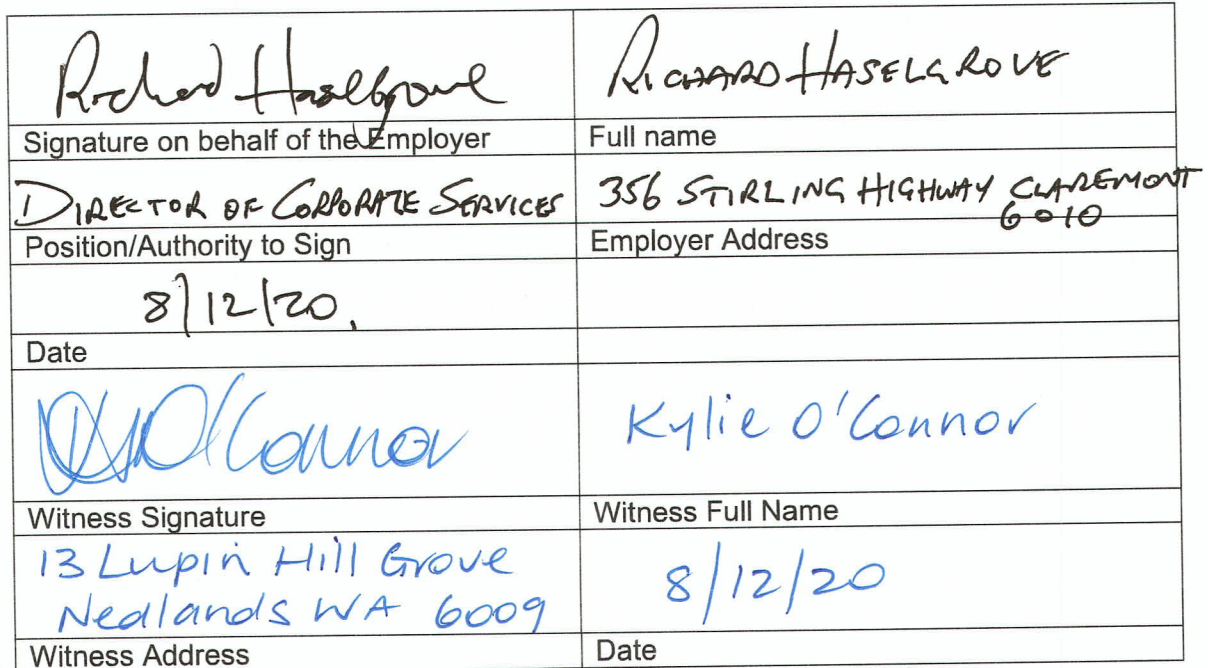 Richard Haselgrove
RICHARD HASELGROVE
Signature on behalf of the Employer
Full name
DIRECTOR OF CORPORATE SERVICES
356 STIRLING HIGHWAY CLAREMONT
6010
Position/Authority to Sign
Employer Address
8/12/20.
Date
O'Connor
Kylie O'Connor
Witness Signature
Witness Full Name
13 Lupin Hill Grove
Nedlands WA 6009
8/12/20
Witness Address
Date